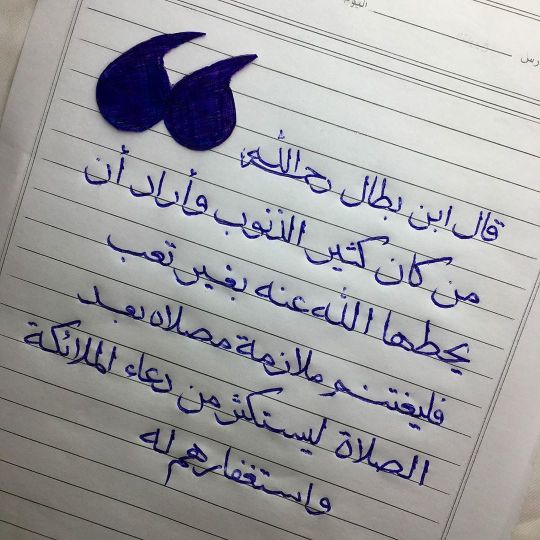 اليوم
قال ابن بطال رحمه الله
من كان كثير الذنوب وأراد أن
يحطها الله عنه بغير تعب
فليغتنم ملازمة مصلاه بعد
الصلاة ليستكثر من دعاء الملائكة
واستغفارهم له